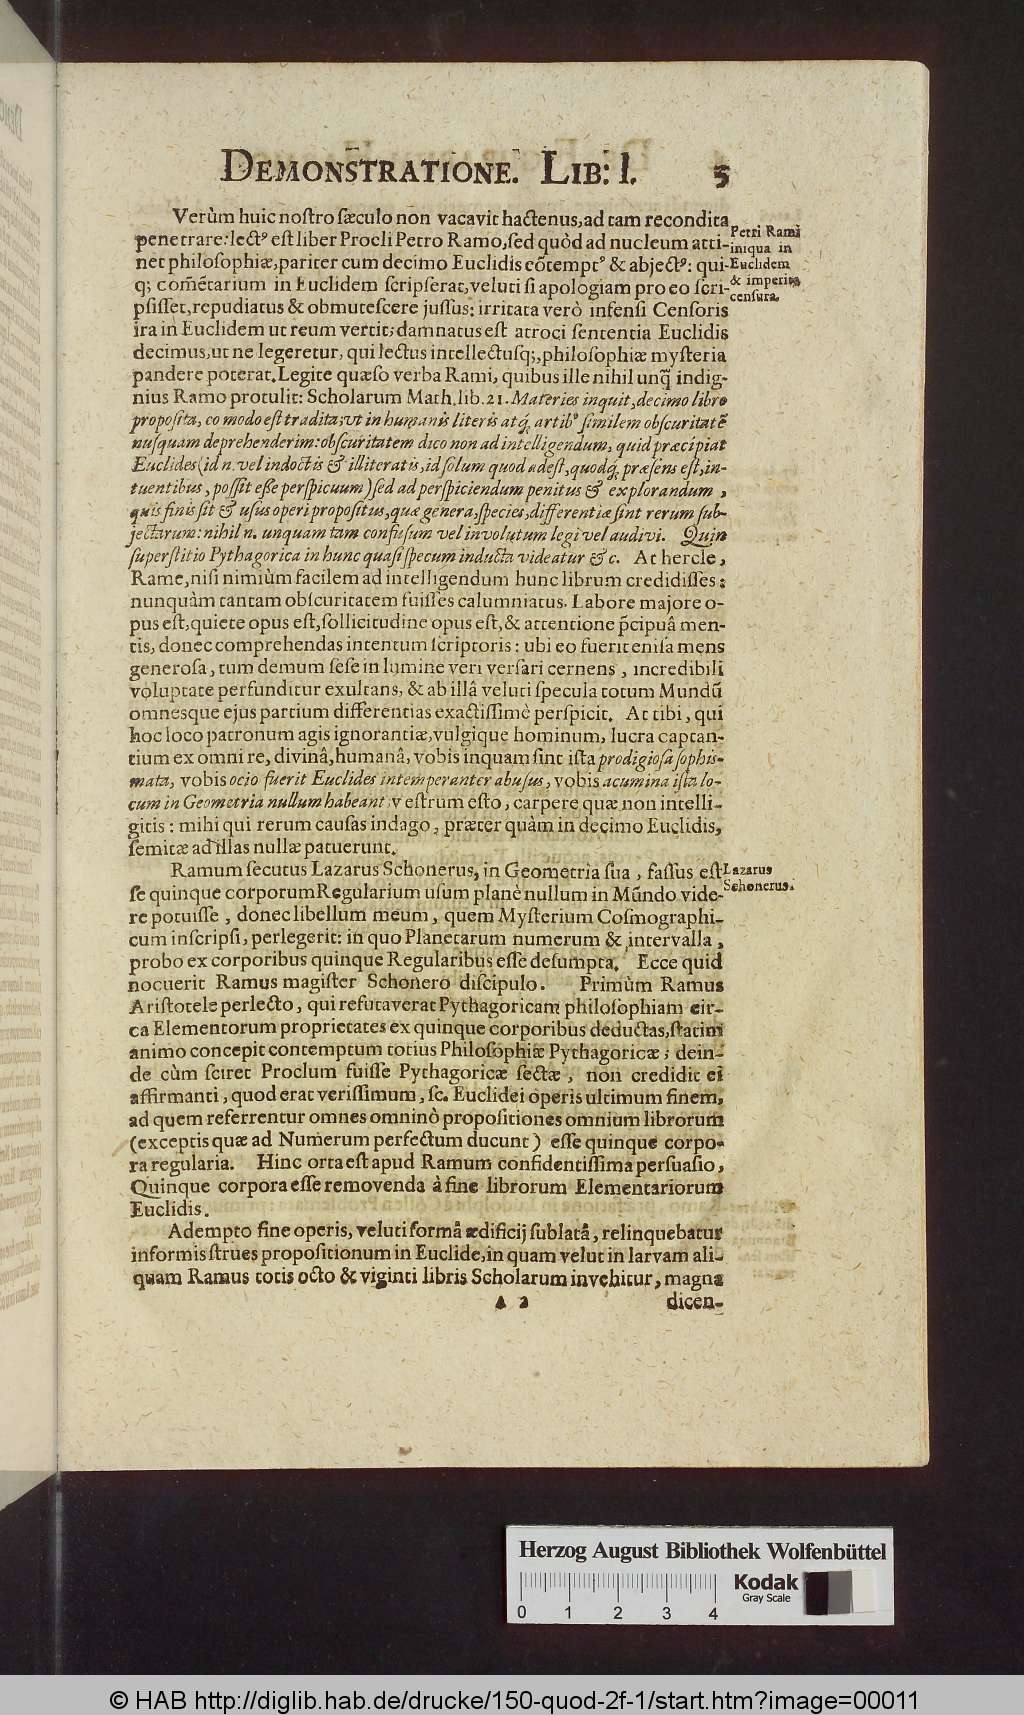 DEMONSTRATIONE. LIB: I. 5
Verùm huic nostro sæculo non vacavit hactenus, ad tam recondita
penetrare: lectꝰ est liber Procli Petro Ramo, sed quòd ad nucleum atti-
net philosophiæ, pariter cum decimo Euclidis cõtemptꝰ & abjectꝰ: qui-
q; com̃ẽtarium in Euclidem scripserat, veluti si apologiam pro eo scri-
psisset, repudiatus & obmutescere jussus: irritata verò infensi Censoris
ira in Euclidem ut reum vertit; damnatus est atroci sententia Euclidis
decimus, ut ne legeretur, qui lectus intellectusq;, philosophiæ mysteria
pandere poterat. Legite quæso verba Rami, quibus ille nihil unq̃ indig-
nius Ramo protulit: Scholarum Math. lib. 21. Materies inquit, decimo libro
proposita, eo modo est tradita; ut in humanis literis atq́; artibꝰ similem obscuritatẽ
nusquam deprehenderim: obscuritatem dico non ad intelligendum, quid præcipiat
Euclides (id n. vel indoctis & illiteratis, id solum quod adest, quodq́; præsens est, in-
tuentibus, possit esse perspicuum) sed ad perspiciendum penitus & explorandum,
quis finis sit & usus operi propositus, quæ genera, species, differentiæ sint rerum sub-
jectarum: nihil n. unquam tam confusum vel involutum legi vel audivi. Quin
superstitio Pythagorica in hunc quasi specum inducta videatur &c. At hercle,
Rame, nisi nimiùm facilem ad intelligendum hunc librum credidisses:
nunquàm tantam obscuritatem fuisses calumniatus. Labore majore o-
pus est, quiete opus est, sollicitudine opus est, & attentione p̃cipuâ men-
tis, donec comprehendas intentum scriptoris: ubi eo fuerit enisa mens
generosa, tum demum sese in lumine veri versari cernens, incredibili
voluptate perfunditur exultans, & ab illâ veluti specula totum Mundũ
omnesque ejus partium differentias exactissimè perspicit. At tibi, qui
hoc loco patronum agis ignorantiæ, vulgique hominum, lucra captan-
tium ex omni re, divinâ, humanâ, vobis inquam sint ista prodigiosa sophis-
mata, vobis ocio fuerit Euclides intemperanter abusus, vobis acumina ista lo-
cum in Geometria nullum habeant, vestrum esto, carpere quæ non intelli-
gitis: mihi qui rerum causas indago, præter quàm in decimo Euclidis,
semitæ ad illas nullæ patuerunt.
Ramum secutus Lazarus Schonerus, in Geometria sua, fassus est
se quinque corporum Regularium usum planè nullum in Mũndo vide-
re potuisse, donec libellum meum, quem Mysterium Cosmographi-
cum inscripsi, perlegerit: in quo Planetarum numerum & intervalla,
probo ex corporibus quinque Regularibus esse desumpta. Ecce quid
nocuerit Ramus magister Schonero discipulo. Primùm Ramus
Aristotele perlecto, qui refutaverat Pythagoricam philosophiam cir-
ca Elementorum proprietates ex quinque corporibus deductas, statim
animo concepit contemptum totius Philosophiæ Pythagoricæ; dein-
de cùm sciret Proclum fuisse Pythagoricæ sectæ, non credidit ei
affirmanti, quod erat verissimum, sc. Euclidei operis ultimum finem,
ad quem referrentur omnes omninò propositiones omnium librorum
(exceptis quæ ad Numerum perfectum ducunt) esse quinque corpo-
ra regularia. Hinc orta est apud Ramum confidentissima persuasio,
Quinque corpora esse removenda à fine librorum Elementariorum
Euclidis.
Adempto fine operis, veluti formâ ædificij sublatâ, relinquebatur
informis strues propositionum in Euclide, in quam velut in larvam ali-
quam Ramus totis octo & viginti libris Scholarum invehitur, magna
A 2 dicen-
Petri Rami
iniqua in
Euclidem
& imperita
censura.
Lazarus
Schonerus.
Herzog August Bibliothek Wolfenbüttel
Kodak
Gray Scale
0 1 2 3 4
© HAB http://diglib.hab.de/drucke/150-quod-2f-1/start.htm?image=00011